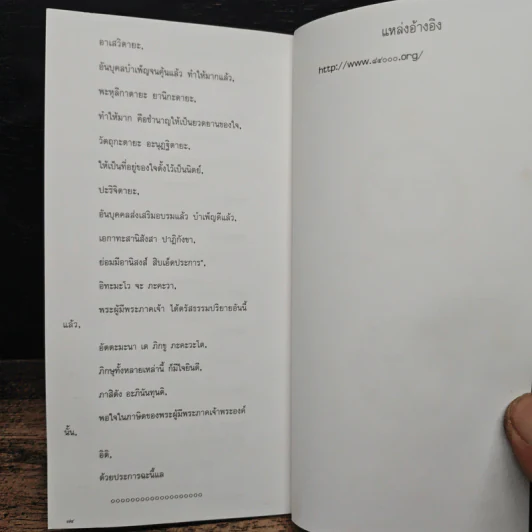 อาเสวิตายะ,
อันบุคลบำเพ็ญจนคุ้นแล้ว ทำให้มากแล้ว,
พะหุลีกาตายะ ยานิกะตายะ,
ทำให้มาก คือชำนาญให้เป็นยวดยานของใจ,
วัตถุกะตายะ อะนุฏฐิตายะ,
ให้เป็นที่อยู่ของใจตั้งไว้เป็นนิตย์,
ปะริจิตายะ,
อันบุคคลส่งเสริมอบรมแล้ว บำเพ็ญดีแล้ว,
เอกาทะสานิสังสา ปาฏิกังขา,
ย่อมมีอานิสงส์ สิบเอ็ดประการ",
อิทะมะโว จะ ภะคะวา,
พระผู้มีพระภาคเจ้า ได้ตรัสธรรมปริยายอันนี้
แล้ว,
อัตตะมะนา เต ภิกขู ภะคะวะโต,
ภิกษุทั้งหลายเหล่านี้ ก็มีใจยินดี,
ภาสิตัง อะภินันทุนติ,
พอใจในภาษิตของพระผู้มีพระภาคเจ้าพระองค์
นั้น,
อิติ,
ด้วยประการฉะนี้แล
๐๐๐๐๐๐๐๐๐๐๐๐๐๐๐๐๐๐๐
แหล่งอ้างอิง
http://www.๘๔๐๐๐.org/